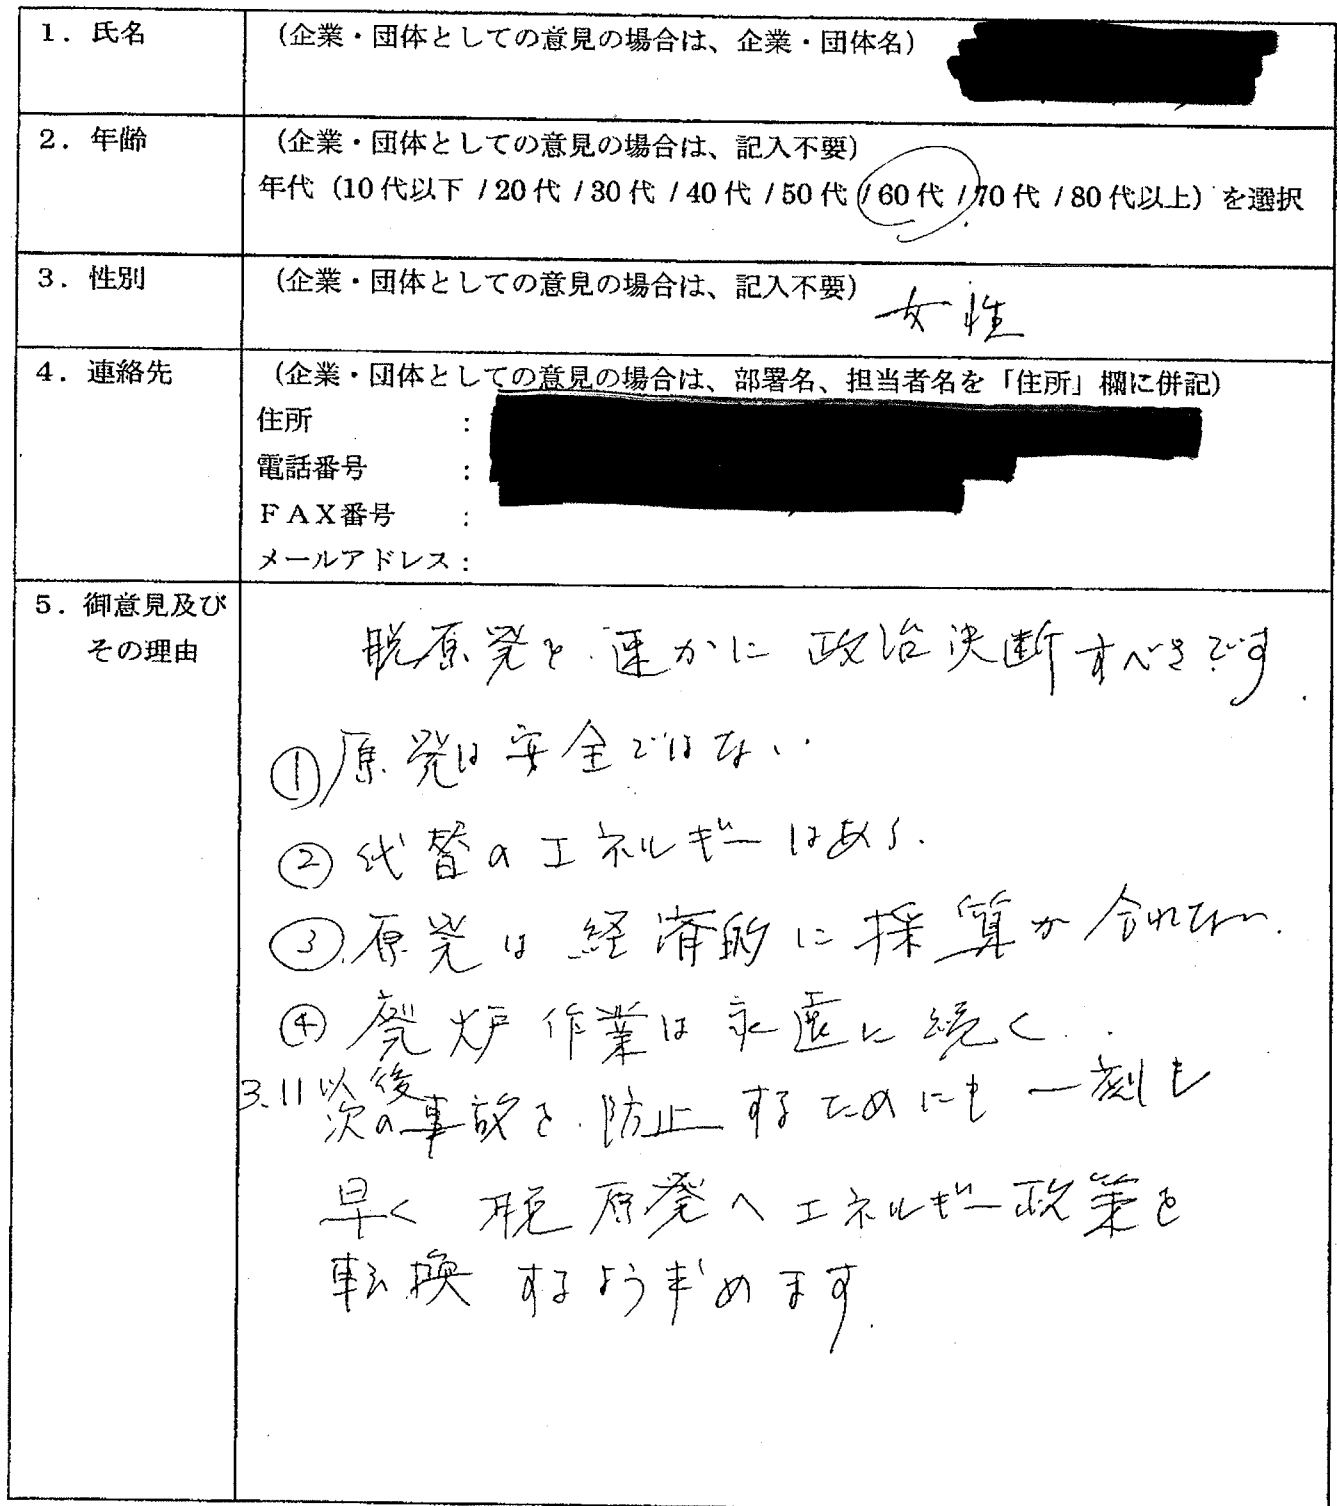 1．氏名
（企業・団体としての意見の場合は、企業・団体名）
2．年齢
（企業・団体としての意見の場合は、記入不要）
年代（10代以下 / 20代 / 30代 / 40代 / 50代 / 60代 / 70代 / 80代以上）を選択
3．性別
（企業・団体としての意見の場合は、記入不要）
女性
4．連絡先
（企業・団体としての意見の場合は、部署名、担当者名を「住所」欄に併記）
住所　：
電話番号　：
ＦＡＸ番号　：
メールアドレス：
5．御意見及び
その理由
脱原発を速かに政治決断すべきです.
①原発は安全ではない.
②代替のエネルギーはある.
③原発は経済的に採算が合れない.
④廃炉作業は永遠に続く.
3.11以後
次の事故を防止するためにも一刻も
早く脱原発へエネルギー政策を
転換するよう求めます.